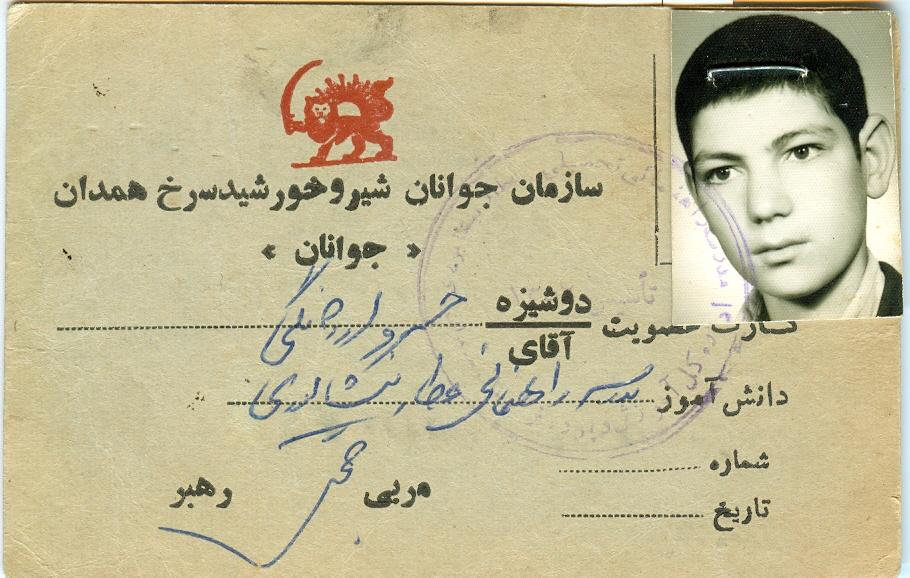 سازمان جوانان شیروخورشیدسرخ همدان
« جوانان »
کارت عضویت دوشیزه آقای خسرو ارژنگی
دانش آموز مدرسه راهنمائی عطار نیشابوری
شماره
تاریخ
مربی
رهبر